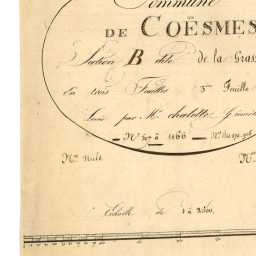 Commune
DE COËSMES
Section B dite de la Gras
en trois Feuilles 3e Feuille
Levée par Mr. chalotte Géomè
N° 507 à 1166
N° Nult
N°
Echelle de 1 à 2500.